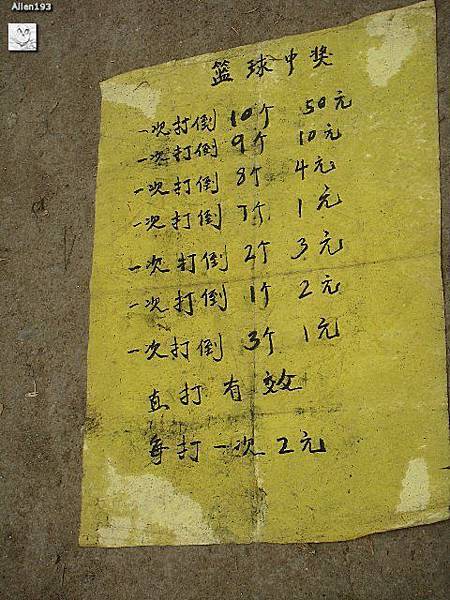 Allen193
篮球中奖
一次打倒 10个 50元
一次打倒 9个 10元
一次打倒 8个 4元
一次打倒 7个 1元
一次打倒 2个 3元
一次打倒 1个 2元
一次打倒 3个 1元
直打有效
每打一次2元